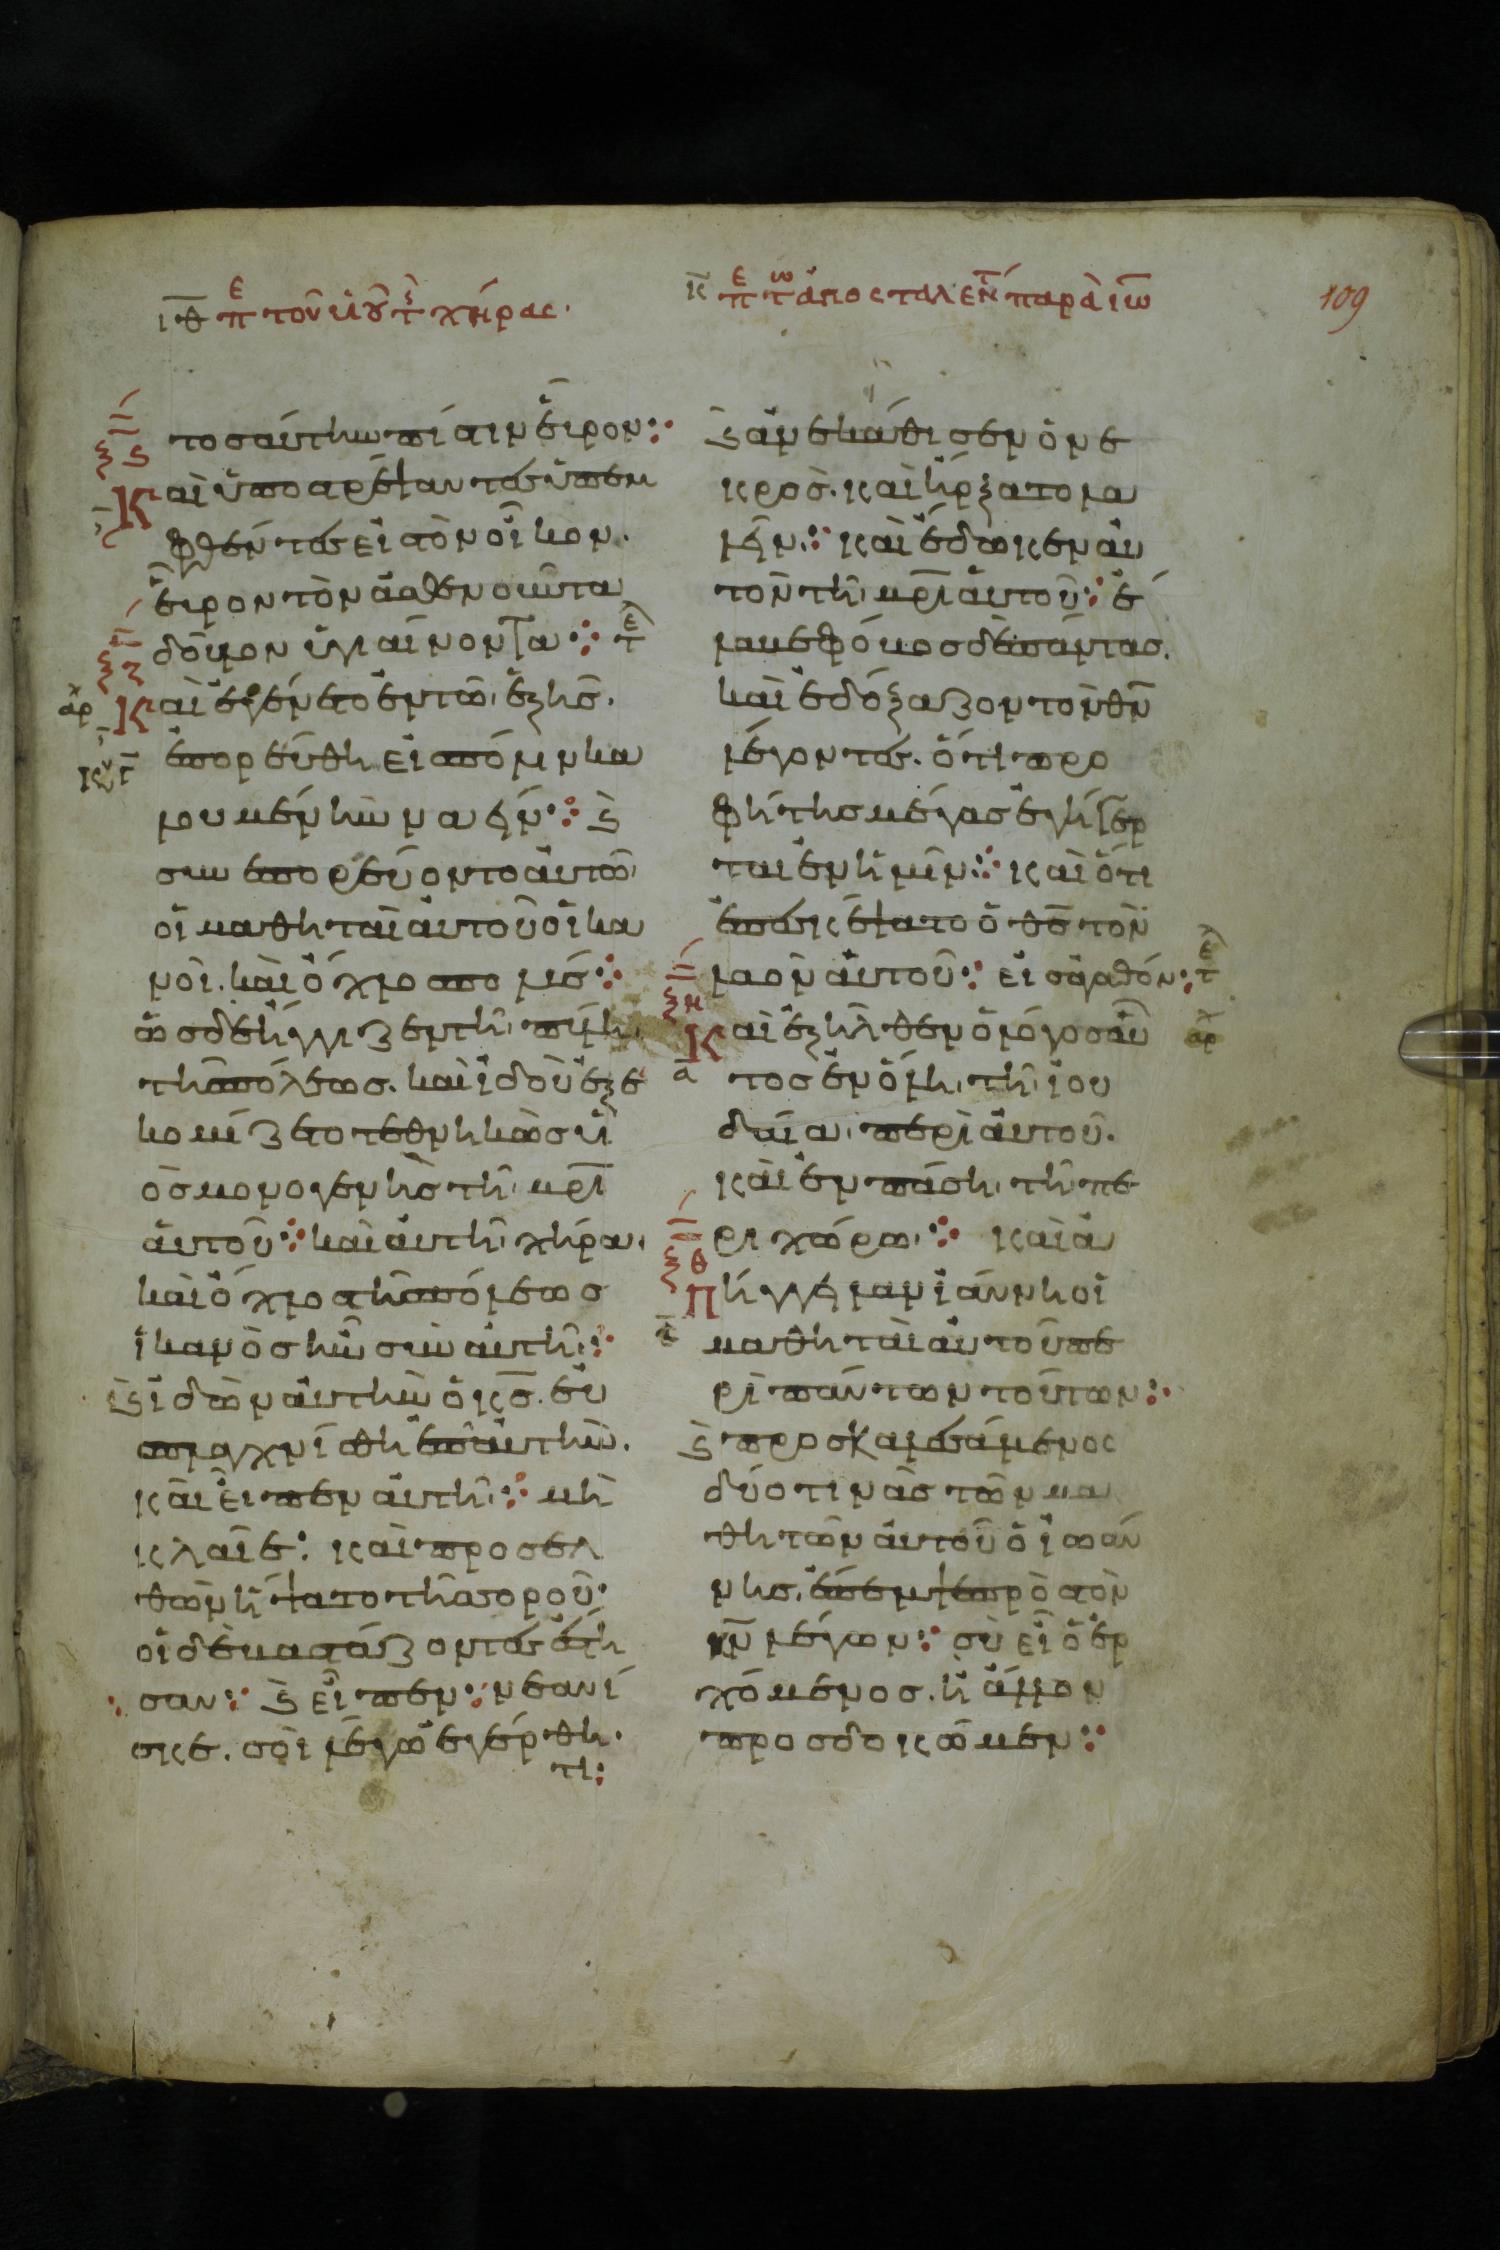 ιθ πε τοῦ υἱοῦ τ χήρας·
ξϛ
τοσαύτην πίστιν εὗρον:
Καὶ ὑποστρέψαντες οἱ πεμ
φθέντες εἰς τὸν οἶκον.
εὗρον τὸν ἀσθενοῦντα
δοῦλον ὑγιαίνοντα: τε
ξζ
αρχ Καὶ ἐγένετο ἐν τῶ ἑξῆς.
ἐπορεύθη εἰς πόλιν κα
λουμένην ναείν: ϗ
συνεπορεύοντο αὐτῶ
οἱ μαθηταὶ αὐτοῦ οἱ κα
νοὶ. καὶ ὄχλος πολύς:
ὡς δὲ ἤγγιζεν τῆ πύλη
τῆς πόλεως. καὶ ἰδοὺ ἐξε
κομίζετο τεθνηκὼς υἱ
ὸς μονογενὴς τῆ μρὶ
αὐτοῦ: καὶ αὐτὴ χήρα.
καὶ ὄχλος τῆς πόλεως
ἱκανὸς ἦν σὺν αὐτῆ:
ϗ ἰδὼν αὐτὴν ὁ κς. εὐ
σπλαγχνίσθη ἐπ αὐτήν.
καὶ εἶπεν αὐτῆ: μὴ
κλαῖε: καὶ προσελ
θὼν ἥψατο τῆς σοροῦ·
οἱ δὲ βαστάζοντες ἔστη
σαν: ϗ εἶπεν: νεανί
σκε. σοὶ λέγω ἐγέρθη
τι:
κ πε τω ἀποσταλέντ παρὰ ἰω
109
ϗ ἀνεκάθισεν ὁ νε
κρός. καὶ ἤρξατο λα
λεῖν: καὶ ἔδωκεν αὐ
τὸν τῆ μρὶ αὐτοῦ: ἔ
λαβε φόβος δὲ πάντας.
καὶ ἐδόξαζον τὸν θν
λέγοντες. ὅτι προ
φήτης μέγας ἐγήγερ
ται ἐν ἡμῖν: καὶ ὅτι
ἐπεσκέψατο ὁ θς τὸν
λαὸν αὐτοῦ: εἰς ἀγαθόν: τε
ξη
Καὶ ἐξῆλθεν ὁ λόγος οὗ αρχ
τος ἐν ὅλη τῆ ἰου
δαία περὶ αὐτοῦ.
καὶ ἐν πάση τῆ πε
ριχώρω: καὶ ἀ
ξθ
Πήγγειλαν ἰωάννη οἱ
μαθηταὶ αὐτοῦ πε
ρὶ πάντων τούτων:
ϗ προσκαλεσάμενος
δύο τινὰς τῶν μα
θητῶν αὐτοῦ ὁ ἰωάν
νης. ἔπεμψε πρὸς τὸν
κν λέγων: σὺ εἶ ὁ ἐρ
χόμενος. ἢ ἄλλον
προσδοκῶμεν: